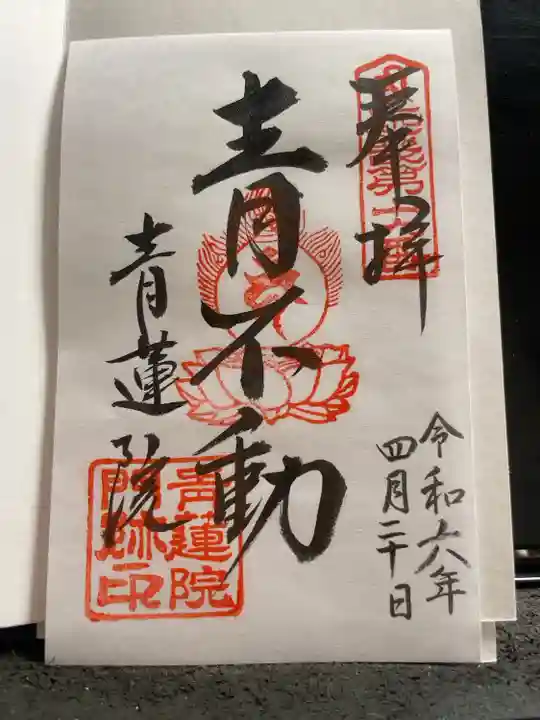 奉拝
青不動
青蓮院
令和六年
四月二十日
青蓮院
門跡印